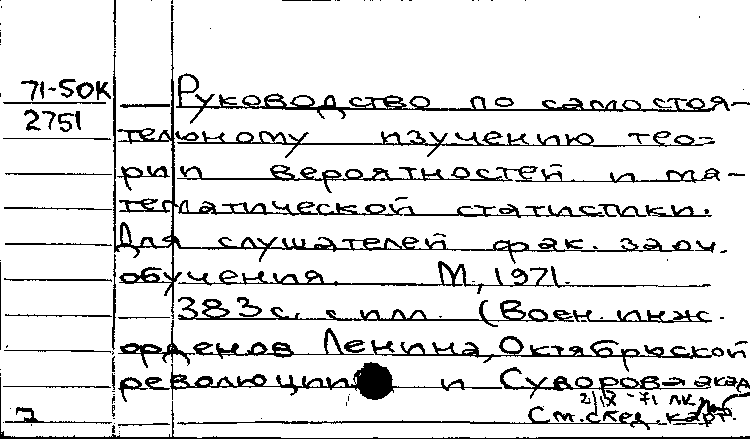 71-50К
2751
Руководство по самостоя-
тельному изучению тео-
рии вероятностей и ма-
тематической статистики.
Для слушателей фак. заоч.
обучения. М, 1971.
383 с. с илл. (Воен. инж.
орденов Ленина, Октябрьской
революции и Суворова акад
2/IX-71 ЛК
См. след. карт.